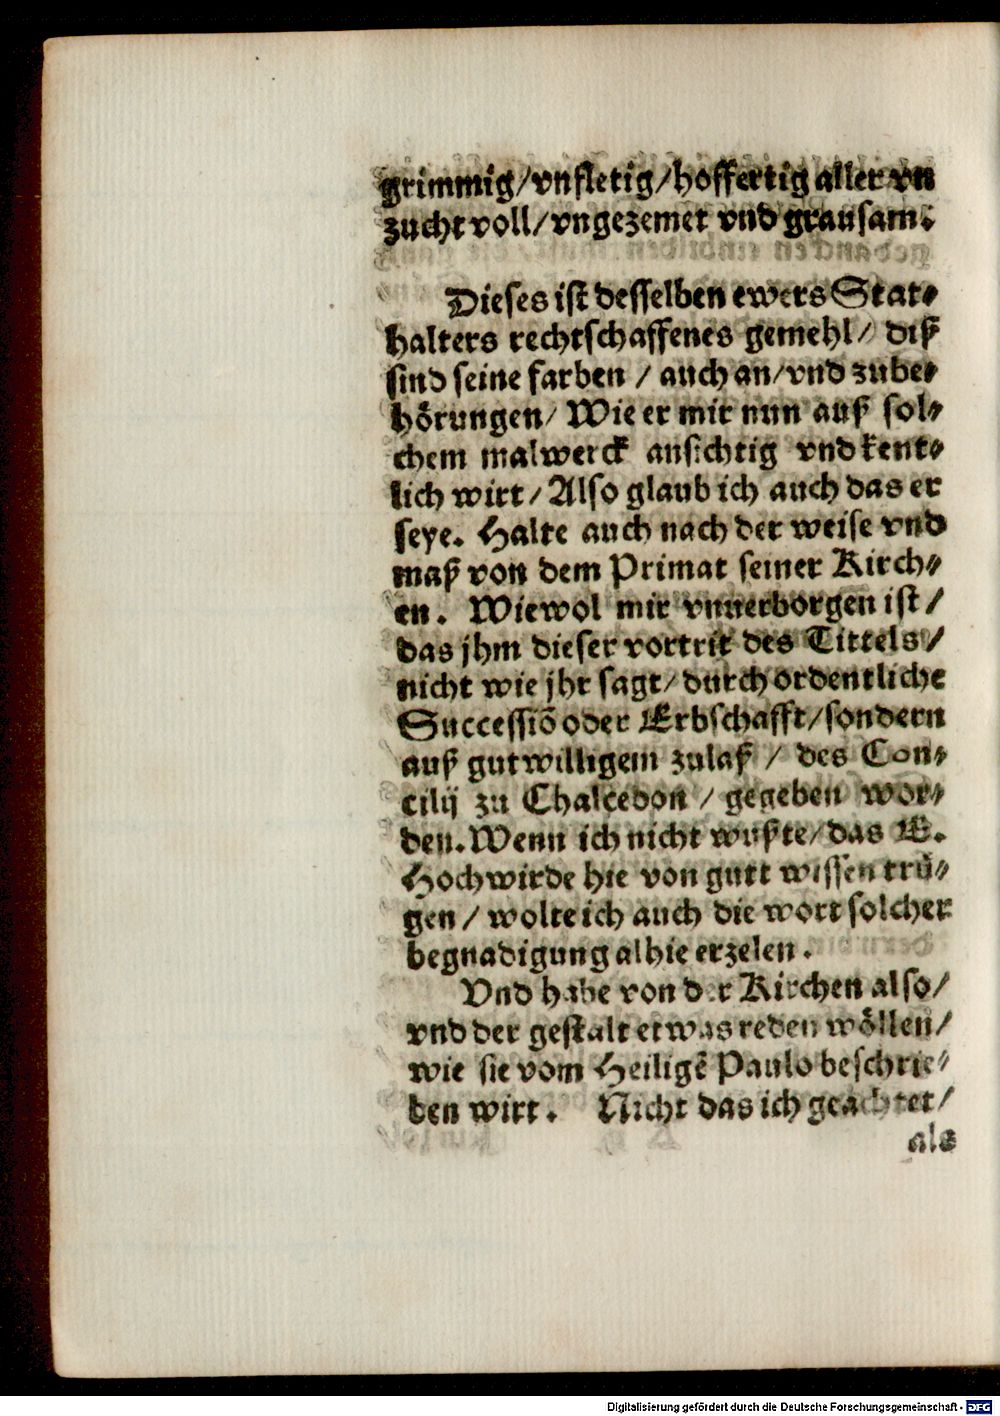 grimmig/vnfletig/hoffertig aller vn
zucht voll/vngezemet vnd grausam.
Dieses ist desselben ewers Stat⸗
halters rechtschaffenes gemehl/ diß
sind seine farben / auch an/vnd zube⸗
hörungen/ Wie er mir nun auß sol⸗
chem malwerck ansichtig vnd kent⸗
lich wirt/ Also glaub ich auch das er
seye. Halte auch nach der weise vnd
maß von dem Primat seiner Kirch⸗
en. Wiewol mir vnuerborgen ist/
das jhm dieser vortrit des Tittels/
nicht wie jhr sagt/ durch ordentliche
Successiõ oder Erbschafft/sondern
auß gutwilligem zulaß / des Con⸗
cilij zu Chalcedon / gegeben wor⸗
den. Wenn ich nicht wußte/ das E.
Hochwirde hie von gutt wissen trü⸗
gen / wolte ich auch die wort solcher
begnadigung alhie erzelen.
Vnd habe von der Kirchen also/
vnd der gestalt etwas reden wöllen/
wie sie vom Heiligẽ Paulo beschrie⸗
ben wirt. Nicht das ich geachtet/
als
Digitalisierung gefördert durch die Deutsche Forschungsgemeinschaft - DFG